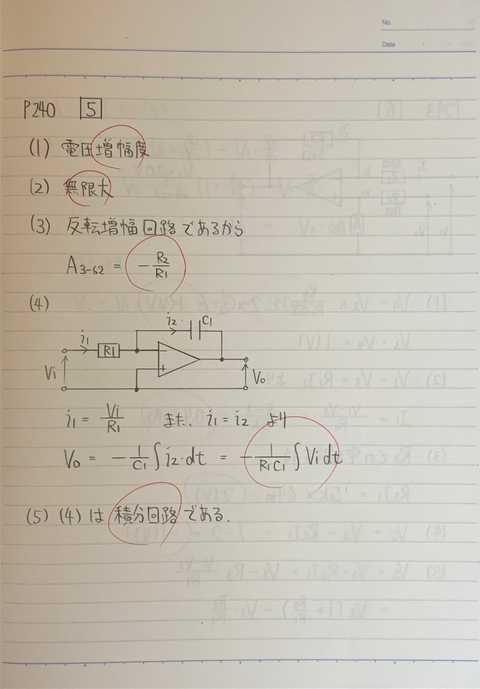 No.
Date
P240 5
(1) 電圧増幅度
(2) 無限大
(3) 反転増幅回路であるから
A3-62 = -R2/R1
(4)
i1 R1 i2 C1
Vi - + Vo
i1 = Vi/R1 また、i1 = i2 より
Vo = -1/C1 ∫ i2·dt = -1/(R1C1) ∫ Vi dt
(5) (4)は積分回路である.